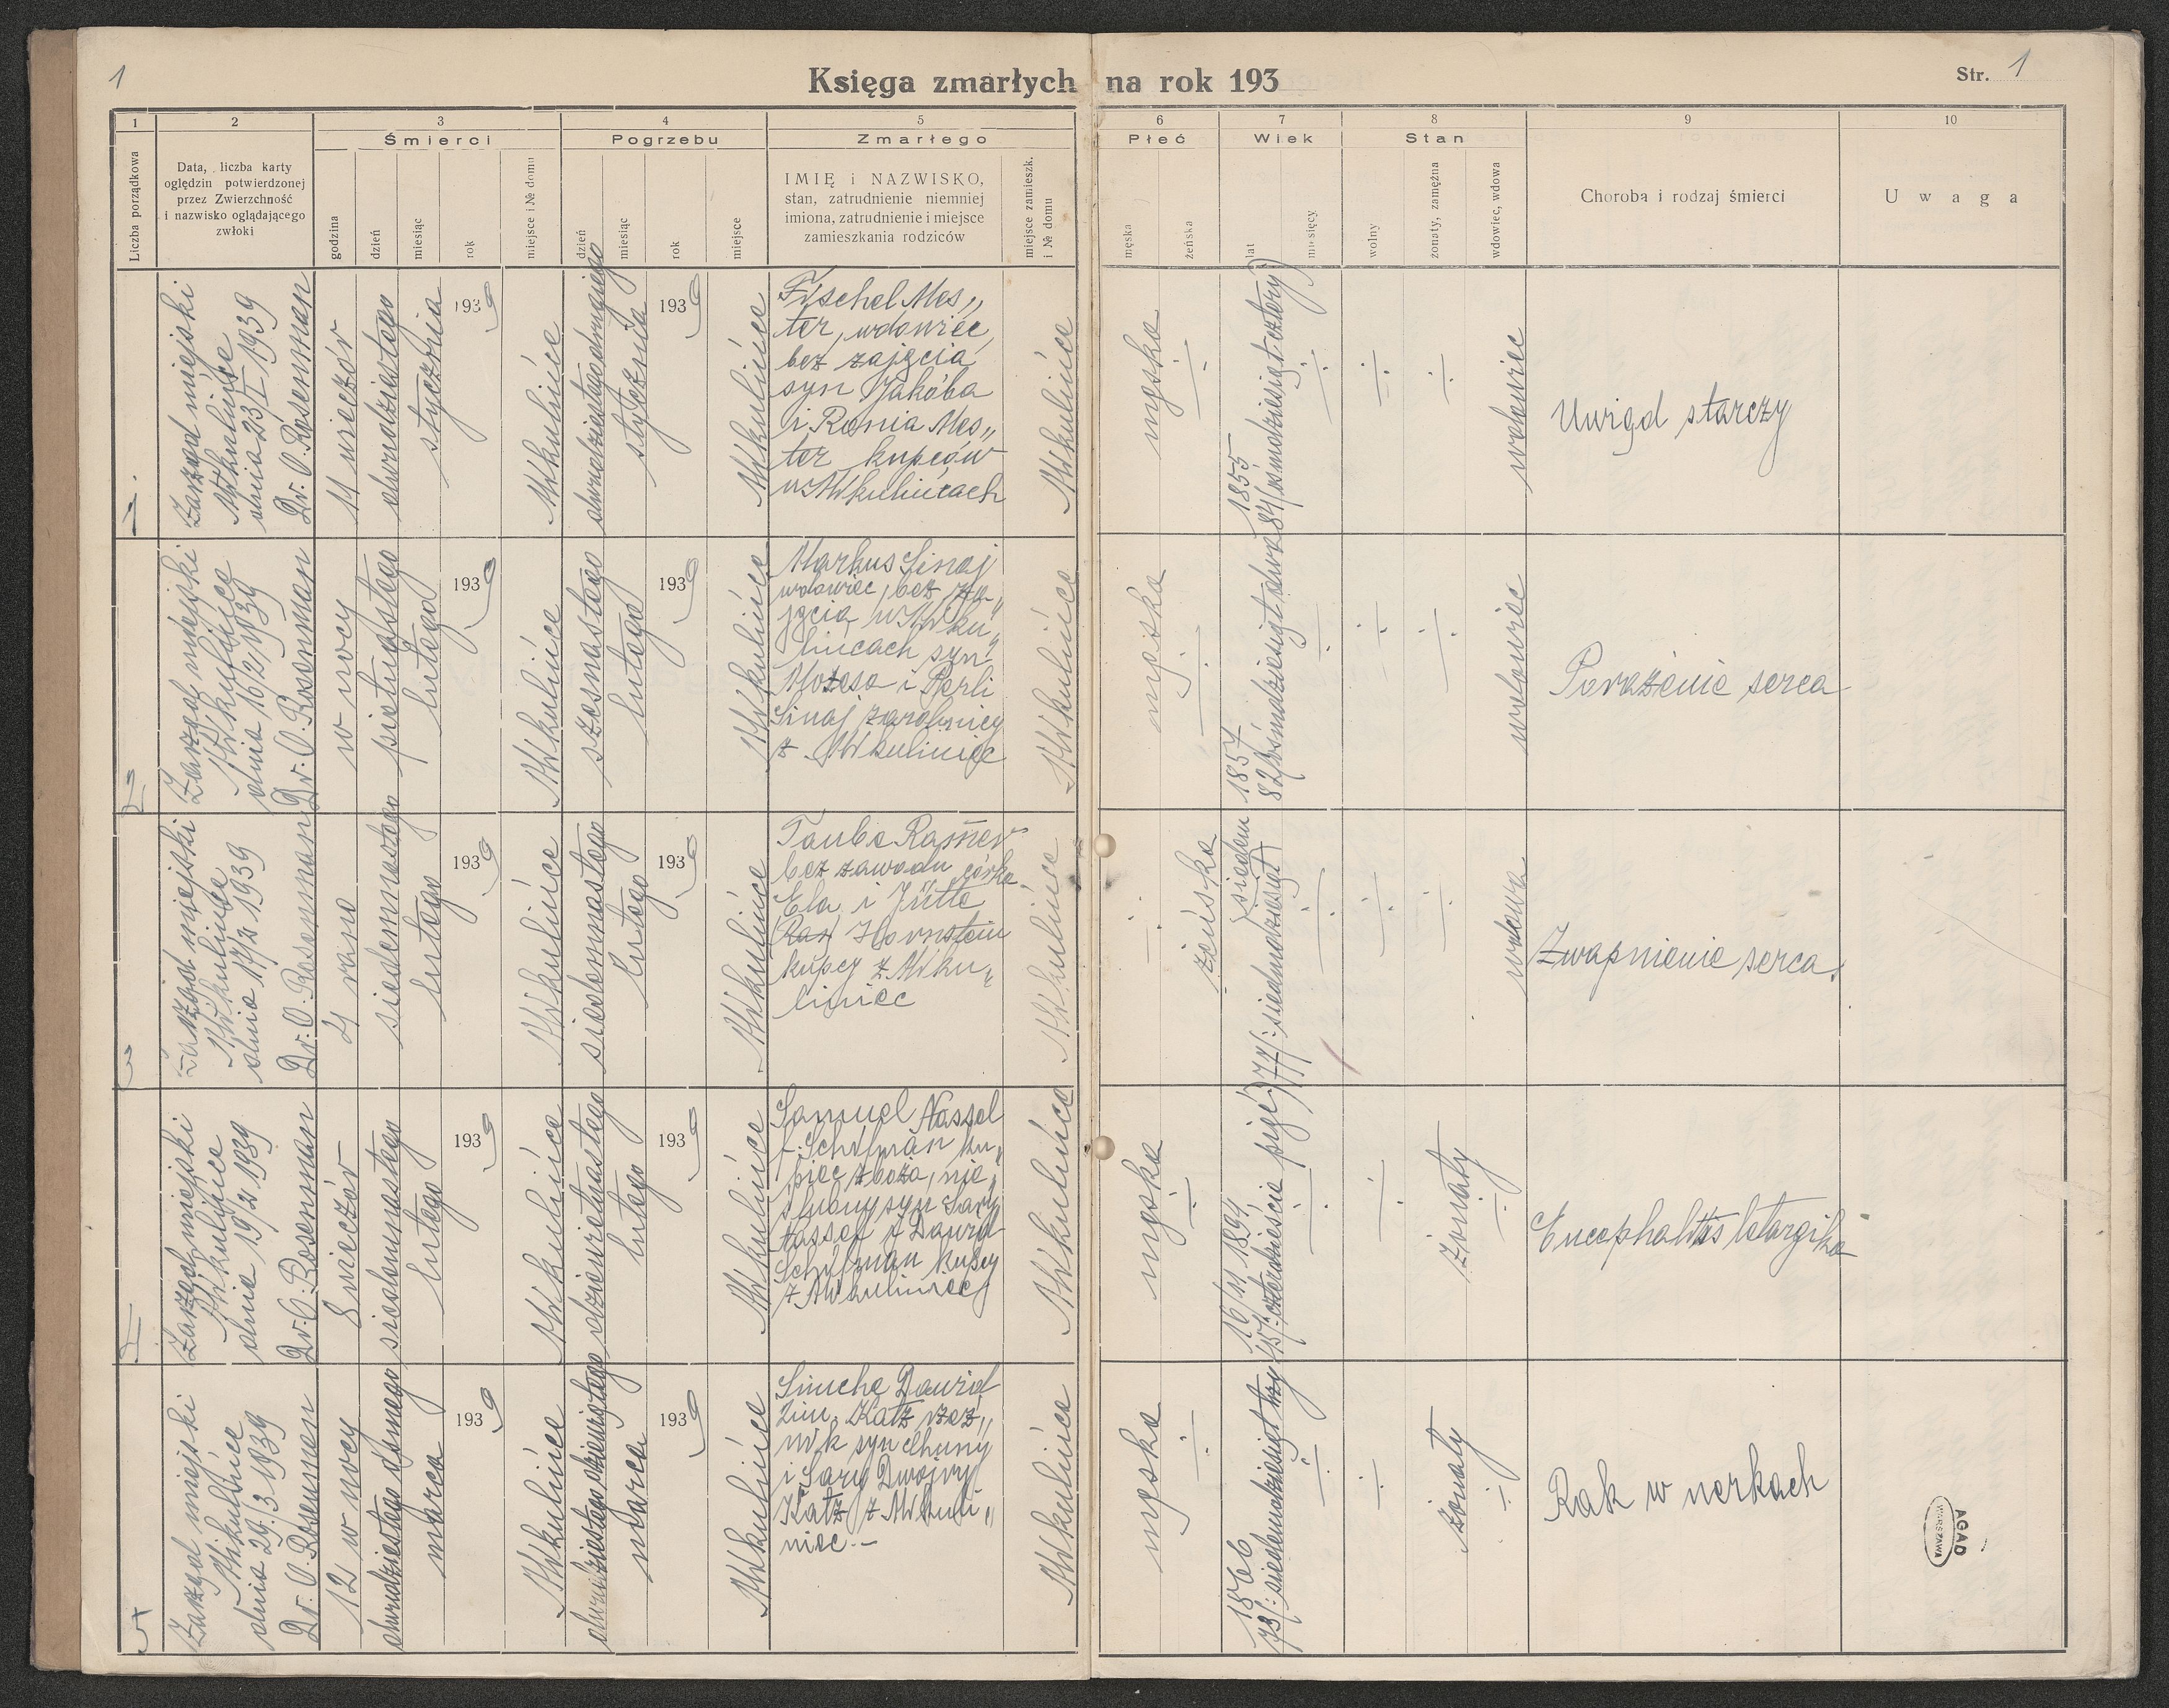 1
Księga zmarłych na rok 193
Str. 1
1
2
3
4
5
6
7
8
9
10
Śmierci
Pogrzebu
Zmarłego
Płeć
Wiek
Stan
Liczba porządkowa
Data, liczba karty
oględzin potwierdzonej
przez Zwierzchność
i nazwisko oglądającego
zwłoki
godzina
dzień
miesiąc
rok
miejsce i № domu
dzień
miesiąc
rok
miejsce
IMIĘ i NAZWISKO,
stan, zatrudnienie niemniej
imiona, zatrudnienie i miejsce
zamieszkania rodziców
miejsce zamieszk.
i № domu
męska
żeńska
lat
miesięcy
wolny
żonaty, zamężna
wdowiec, wdowa
Choroba i rodzaj śmierci
Uwaga
1.
Zarząd miejski
Mikulińce
dnia 23/I 1939
Dr. O. Rosenman
11 wieczór
dwudziestego
stycznia
1939
Mikulińce
dwudziestegodrugiego
stycznia
1939
Mikulińce
Fischel Mes„
ter, wdowiec,
bez zajęcia
syn Jakóba
i Romia Mes„
ter kupców
w Mikulińcach
Mikulińce
męska
÷
1855
84/ośmdziesiąt cztery)
÷
÷
÷
wdowiec
Uwiąd starczy
2
Zarząd miejski
Mikulińce
dnia 16/2 1939
Dr. O. Rosenman
w nocy
piętnastego
lutego
1939
Mikulińce
szesnastego
lutego
1939
Mikulińce
Markus Sinaj
wdowiec, bez za„
jęcia w Miku„
lińcach syn
Mozesa i Perli
Sinaj zarobnicy
z Mikuliniec
Mikulińce
męska
÷
1857
82/ośmdziesiąt dwa
÷
÷
÷
wdowiec
Porażenie serca
3
Zarząd miejski
Mikulińce
dnia 17/2 1939
Dr. O. Rosenman
4 rano
siedemnastego
lutego
1939
Mikulińce
siedemnastego
lutego
1939
Mikulińce
Taube
bez zawodu córka
Ela i Jütte
Hornstein
kupcy z Miku„
liniec
Mikulińce
÷
żeńska
77/: siedmdziesiąt
siedem
÷
÷
÷
wdowa
Zwapnienie serca.
4
Zarząd miejski
Mikulińce
dnia 19/2 1939
Dr. O. Rosenman
8 wieczór
siedemnastego
lutego
1939
Mikulińce
dziewiętnastego
lutego
1939
Mikulińce
Samuel Nassel
f. Schulman ku„
piec zboża, nie„
ślubny syn Sary
Nassel i Dawid
Schulman kupcy
z Mikuliniec
Mikulińce
męska
÷
16/11 1894
45/: czterdzieście pięć)
÷
÷
żonaty
÷
Encephalitis letargika
5
Zarząd miejski
Mikulińce
dnia 29/3 1939
Dr. O. Rosenman
12 w nocy
dwudziestego ósmego
marca
1939
Mikulińce
dwudziestego dziewiątego
marca
1939
Mikulińce
Simche Dawid
2im. Katz rzeź„
nik syn Chuny
i Sary Dwojry
Katz z Mikuli„
niec.–
Mikulińce
męska
÷
1866
73/: siedemdziesiąt trzy
÷
÷
żonaty
÷
Rak w nerkach
AGAD
WARSZAWA